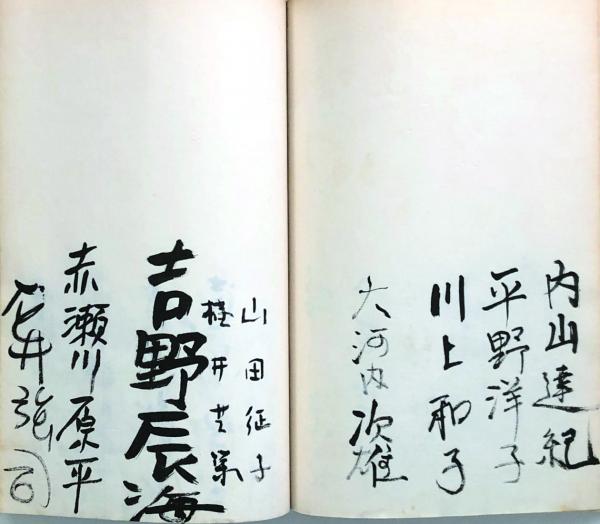 内山達紀
平野洋子
川上和子
大河内次雄
山田征子
桂井芝
吉野辰海
赤瀬川原平
石井強司